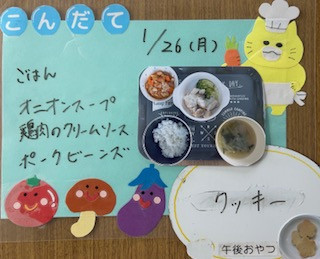 こんだて
1/26(月)
ごはん
オニオンスープ
鶏肉のクリームソース
ポークビーンズ
クッキー
午後おやつ